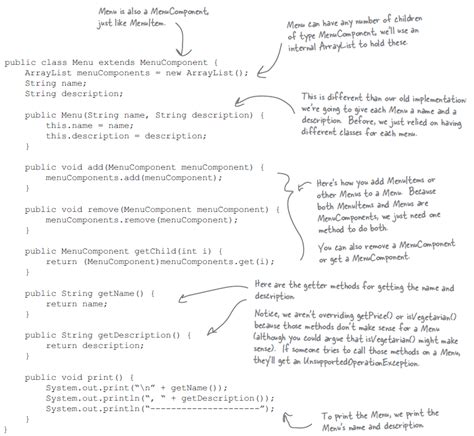 Menu is also a MenuComponent,
just like MenuItem.
Menu can have any number of children
of type MenuComponent, we'll use an
internal ArrayList to hold these.
public class Menu extends MenuComponent {
ArrayList menuComponents = new ArrayList();
String name;
String description;
This is different than our old implementation:
we're going to give each Menu a name and a
description. Before, we just relied on having
different classes for each menu.
public Menu(String name, String description) {
this.name = name;
this.description = description;
}
public void add(MenuComponent menuComponent) {
menuComponents.add(menuComponent);
}
Here's how you add MenuItems or
other Menus to a Menu. Because
both MenuItems and Menus are
MenuComponents, we just need one
method to do both.
You can also remove a MenuComponent
or get a MenuComponent.
public void remove(MenuComponent menuComponent) {
menuComponents.remove(menuComponent);
}
public MenuComponent getChild(int i) {
return (MenuComponent)menuComponents.get(i);
}
Here are the getter methods for getting the name and
description.
Notice, we aren't overriding getPrice() or isVegetarian()
because those methods don't make sense for a Menu
(although you could argue that isVegetarian() might make
sense). If someone tries to call those methods on a Menu,
they'll get an UnsupportedOperationException.
public String getName() {
return name;
}
public String getDescription() {
return description;
}
public void print() {
System.out.print("\n" + getName());
System.out.println(", " + getDescription());
System.out.println("---------------------");
}
}
To print the Menu, we print the
Menu's name and description.